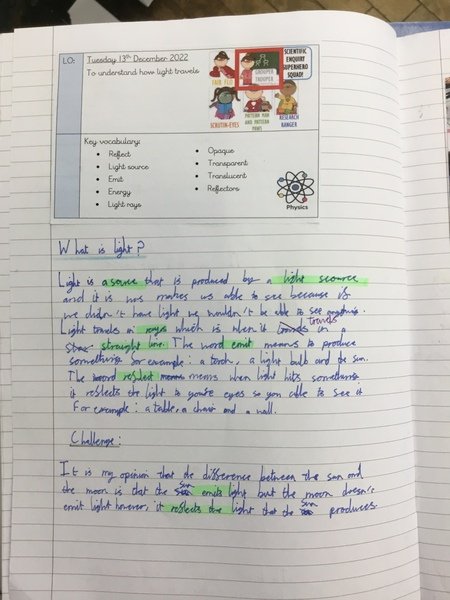 LO:
Tuesday 13th December 2022
To understand how light travels
FAIR
GROUPER
TROOPER
SCIENTIFIC
ENQUIRY
SUPERHERO
SQUAD!
SCRUTIN-EYES
PATTERN MAN
AND PATTERN
PAWS
RESEARCH
RANGER
Key vocabulary:
• Reflect
• Light source
• Emit
• Energy
• Light rays
• Opaque
• Transparent
• Translucent
• Reflectors
Physics
What is light?
Light is a source that is produced by a light scource
and it is was makes us able to see because if
we didn't have light we wouldn't be able to see anything.
Light travels in rays which is when it travels in a
straight line. The word emit means to produce
something for example: a torch, a light bulb and the sun.
The word reflect means when light hits something
it reflects the light to youre eyes so you able to see it
For example: a table, a chair and a wall.
Challenge:
It is my opinion that the difference between the sun and
the moon is that the Sun emits light but the moon doesn't
emit light however it reflects the light that the Sun produces.